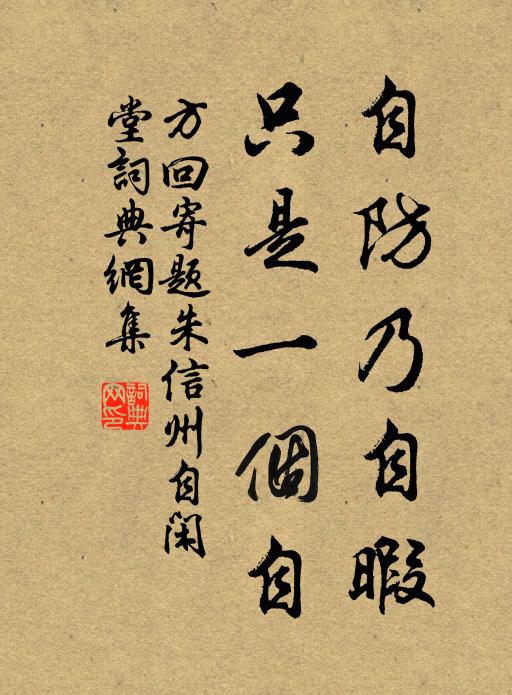 自防乃自暇
只是一個自
方回寄題朱信州自閑
堂詞典網集
詞典
网印